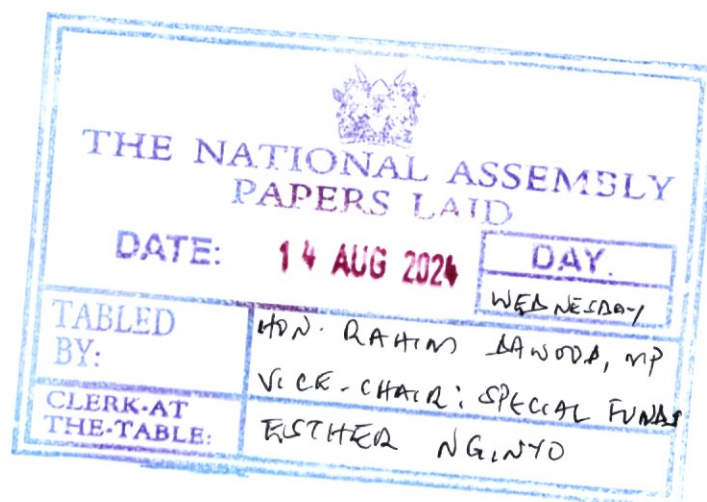 THE NATIONAL ASSEMBLY
PAPERS LAID
DATE: 14 AUG 2024
DAY.
WEDNESDAY
TABLED BY:
HON. RAHIM DAWOOD, MP
VICE-CHAIR: SPECIAL FUNDS
CLERK-AT THE-TABLE:
ESTHER NGINYO